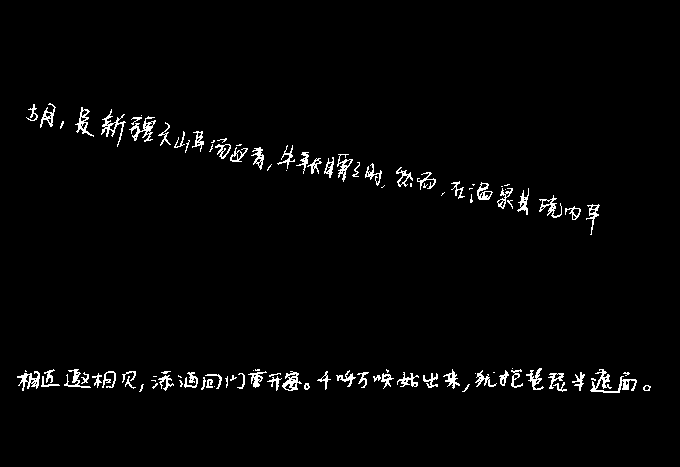 5月，是新疆天山牧场迎青，牛羊长膘之时，然而，在温泉县境内草
相近邀相见，添酒回灯重开宴。千呼万唤始出来，犹抱琵琶半遮面。